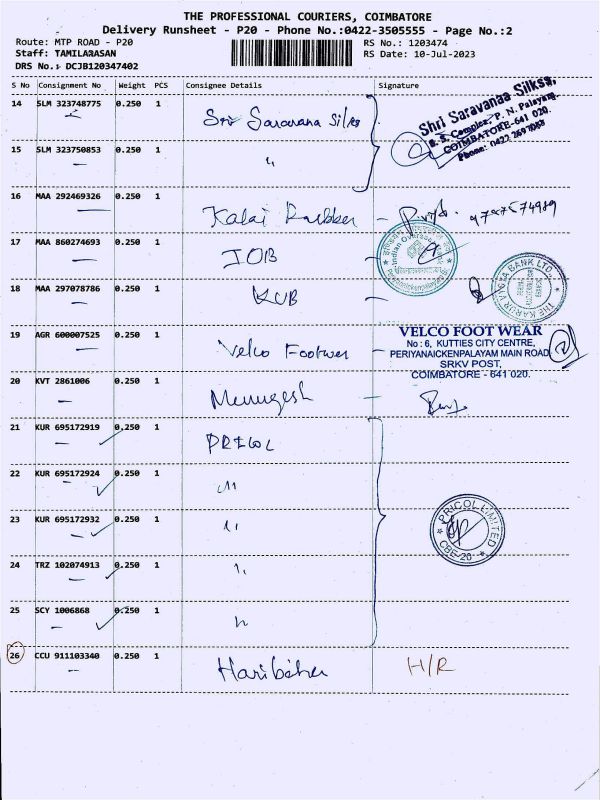 THE PROFESSIONAL COURIERS, COIMBATORE
Delivery Runsheet - P20 - Phone No.:0422-3505555 - Page No.:2
Route: MTP ROAD - P20 RS No.: 1203474
Staff: TAMILARASAN RS Date: 10-Jul-2023
DRS No.: DCJB120347402
S No Consignment No Weight PCS Consignee Details Signature
14 SLM 323748775 0.250 1 Sri Saravana Silks
Shri Saravanaa Silkss,
S. S. Complex, P. N. Palayam,
COIMBATORE-641 020.
Phone: 0422
15 SLM 323750853 0.250 1 "
16 MAA 292469326 0.250 1 Kalai Rubber - 9787574989
17 MAA 860274693 0.250 1 IOB
Indian Overseas
18 MAA 297078786 0.250 1 KVB -
THE KARUR VYSYA BANK LTD.,
19 AGR 600007525 0.250 1 Velco Footwer -
VELCO FOOT WEAR
No : 6, KUTTIES CITY CENTRE,
PERIYANAICKENPALAYAM MAIN ROAD
SRKV POST,
COIMBATORE - 641 020.
20 KVT 2861006 0.250 1 Murugesh -
21 KUR 695172919 0.250 1 PRICOL
22 KUR 695172924 0.250 1 "
23 KUR 695172932 0.250 1 "
PRICOL LIMITED
CBE-20
24 TRZ 102074913 0.250 1 "
25 SCY 1006868 0.250 1 "
26 CCU 911103340 0.250 1 H/R